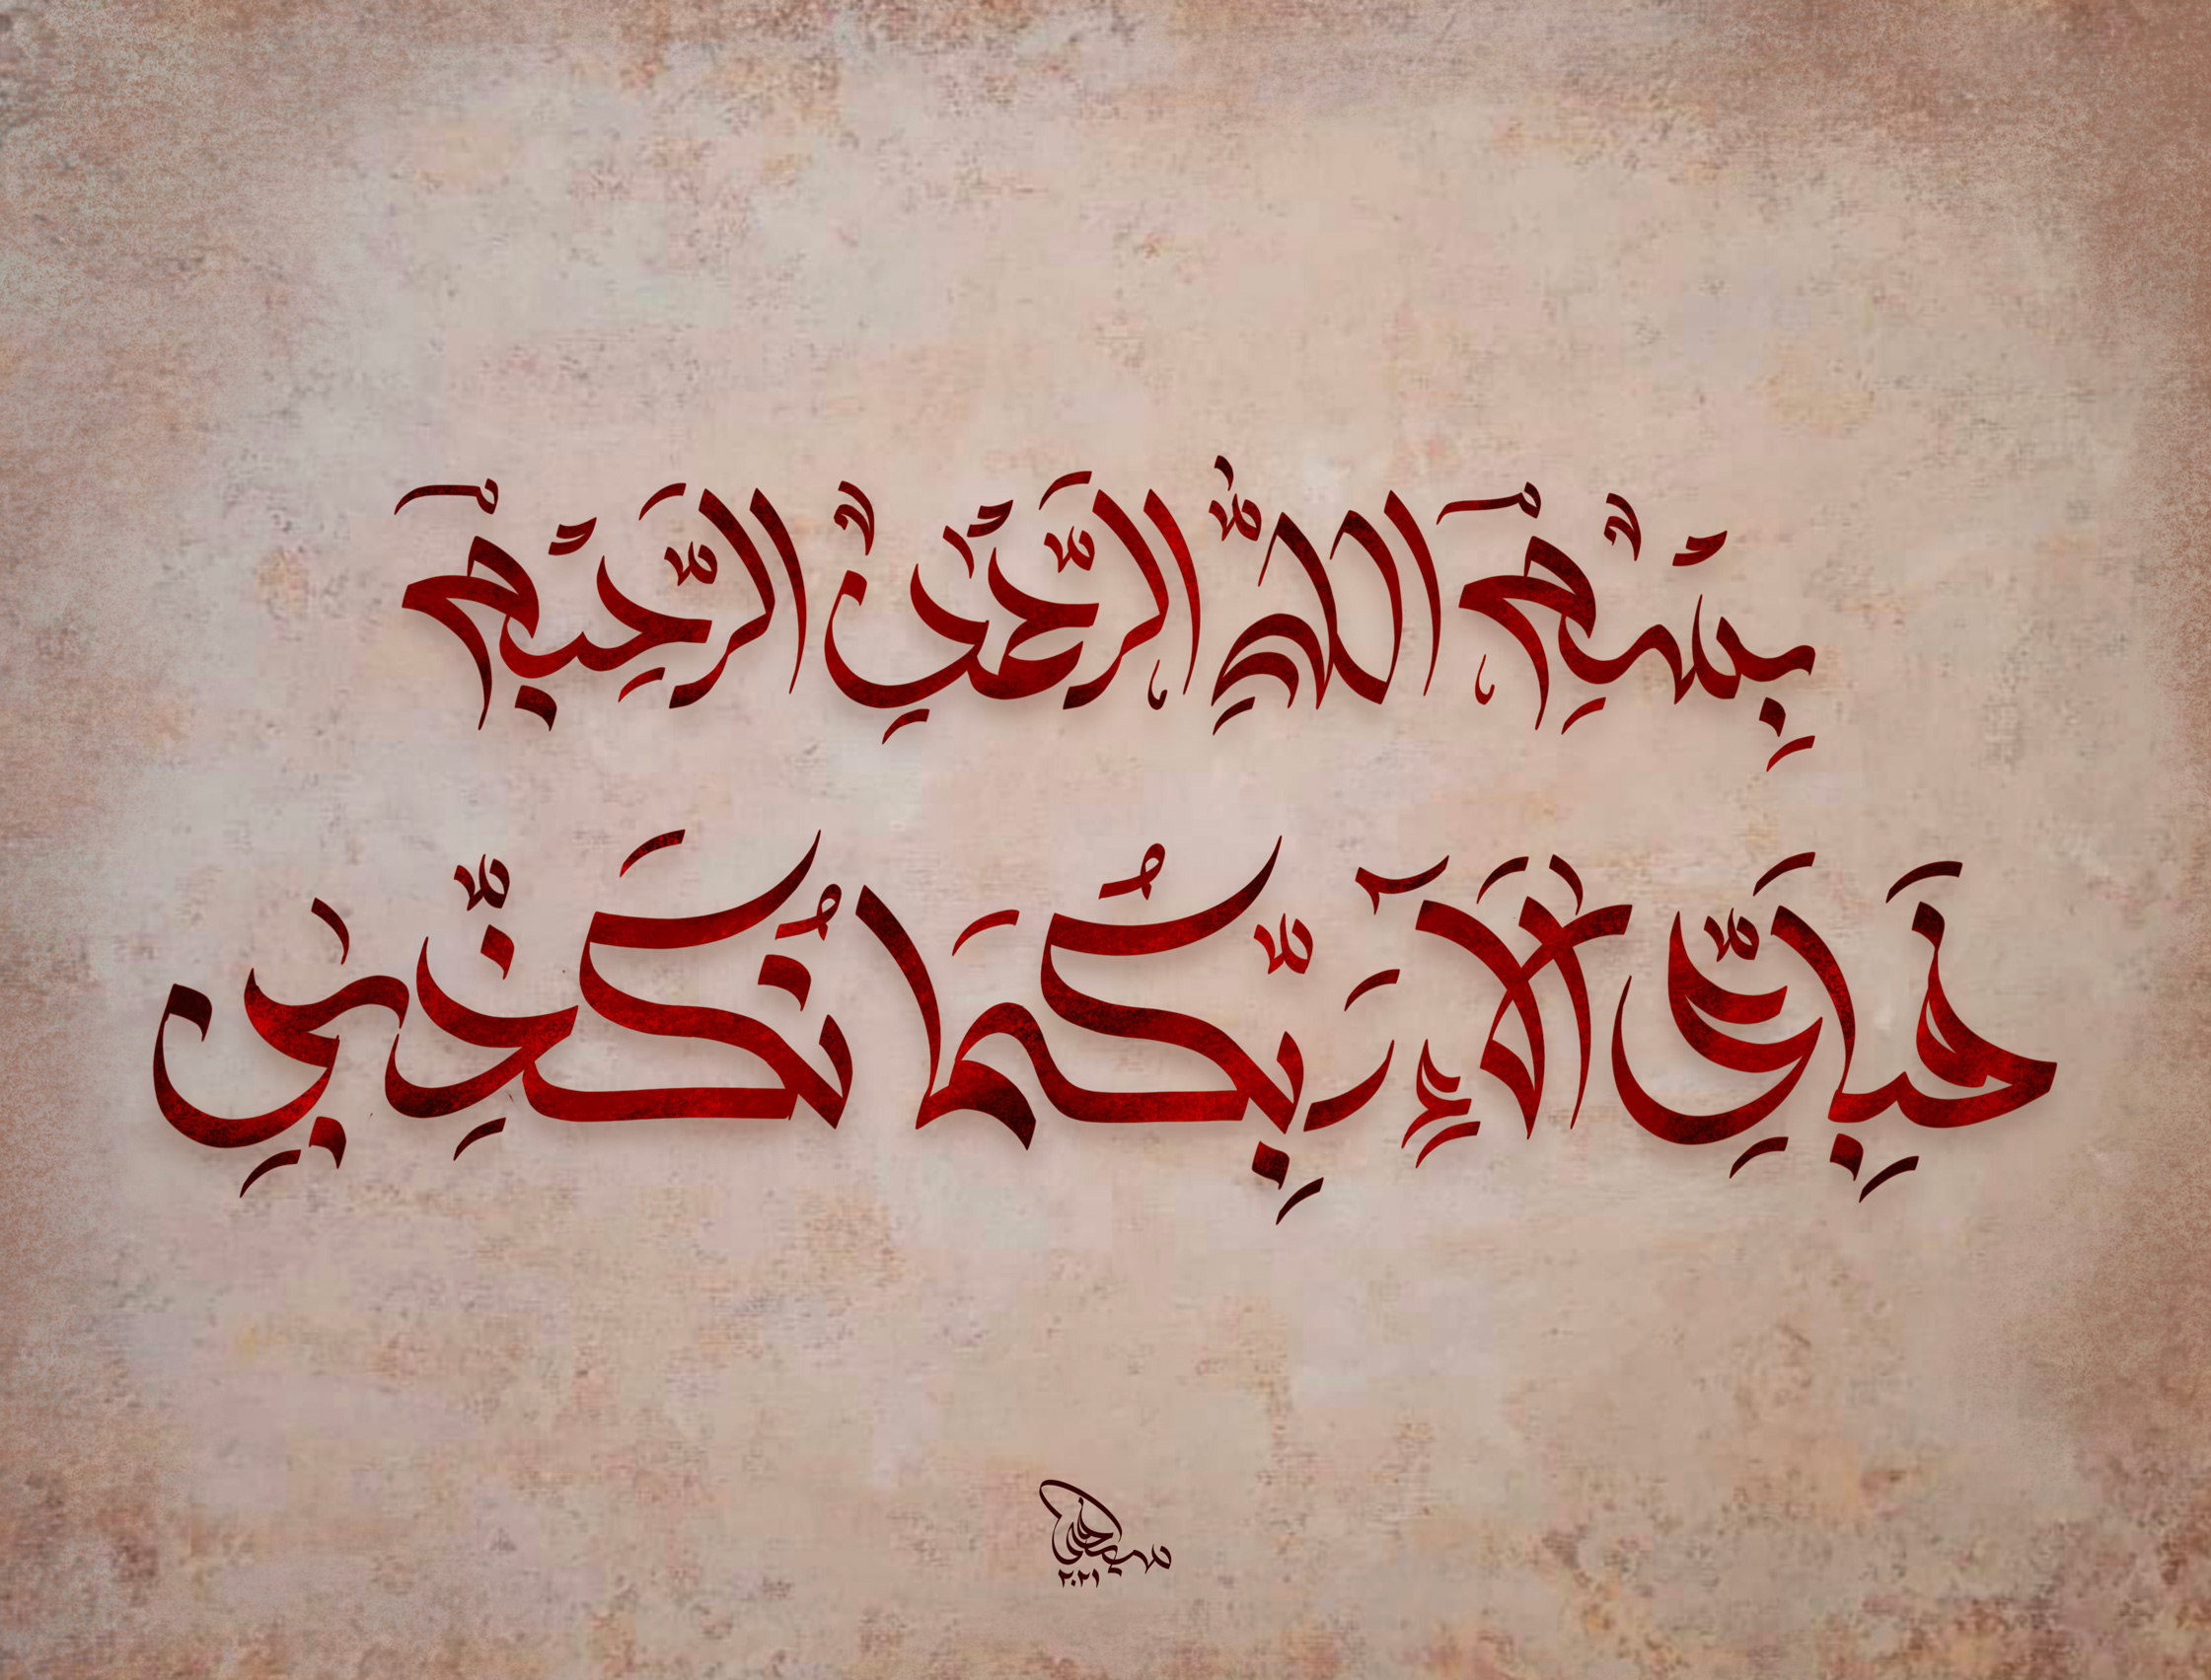 بِسْمِ اللَّهِ الرَّحْمَٰنِ الرَّحِيمِ
فَبِأَيِّ آلَاءِ رَبِّكُمَا تُكَذِّبَانِ
٢٠٢١